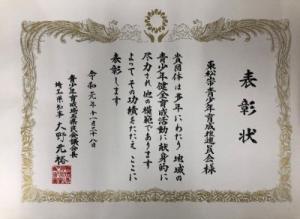 表彰状
東松山市青少年育成推進員会様
貴団体は多年にわたり地域の
青少年健全育成活動に献身的に
尽力され他の模範であります
よってその功績をたたえここに
表彰します
令和元年十一月二十八日
青少年育成埼玉県民会議会長
埼玉県知事 大野元裕